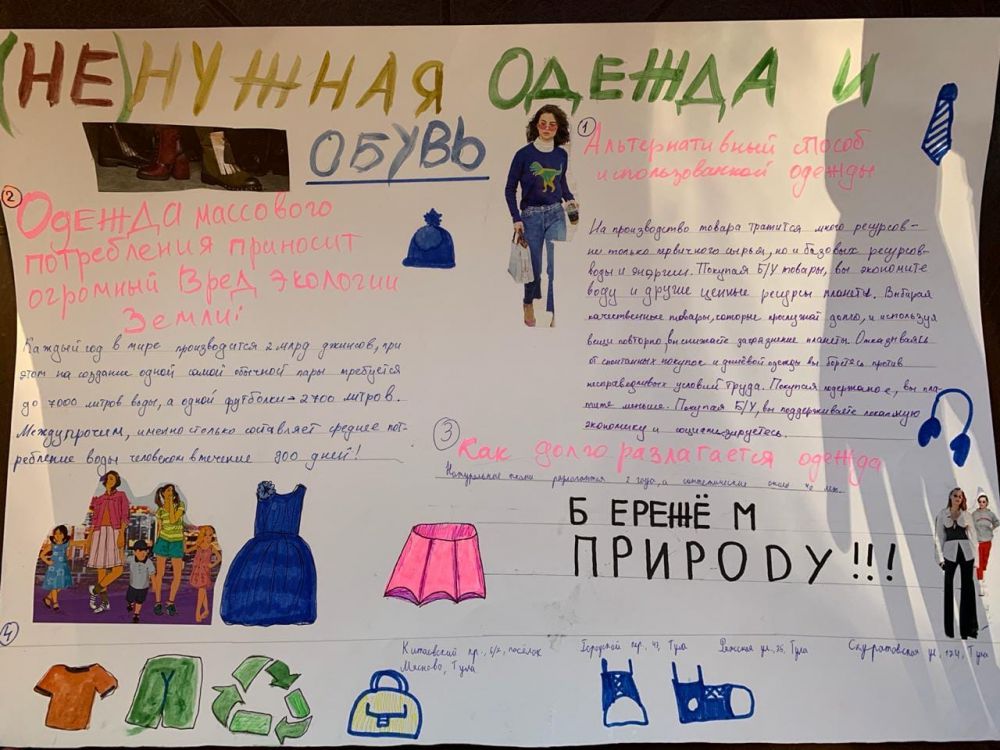 (НЕ)НУЖНАЯ ОДЕЖДА И
ОБУВЬ
1
Альтернативный способ
использованной одежды
На производство товара тратится много ресурсов-
не только первичного сырья, но и базовых ресурсов-
воды и энергии. Покупая Б/У товары, вы экономите
воду и другие ценные ресурсы планеты. Выбирая
качественные товары, которые прослужат долго, и используя
вещи повторно, вы снижаете загрязнение планеты. Отказываясь
от спонтанных покупок и дешёвой одежды вы боретесь против
несправедливых условий труда. Покупая подержаное, вы пла-
тите меньше. Покупая Б/У, вы поддерживаете локальную
экономику и социализируетесь.
2
Одежда массового
потребления приносит
огромный Вред Экологии
Земли!
Каждый год в мире производится 2 млрд джинсов, при
этом на создание одной самой обычной пары требуется
до 7000 литров воды, а одной футболки - 2700 литров.
Междупрочим, именно столько составляет среднее пот-
ребление воды человеком в течение 900 дней!
3
Как долго разлагается одежда
разлагаются 2 года, а синтетические около 40 лет.
Б ЕРЕЖЁ М
ПРИРОДУ!!!
4
Китаевский пр., 6/2, посёлок
Мясново, Тула
Городской пр., Тула
ул., 26, Тула
Скуратовская ул., 174, Тула